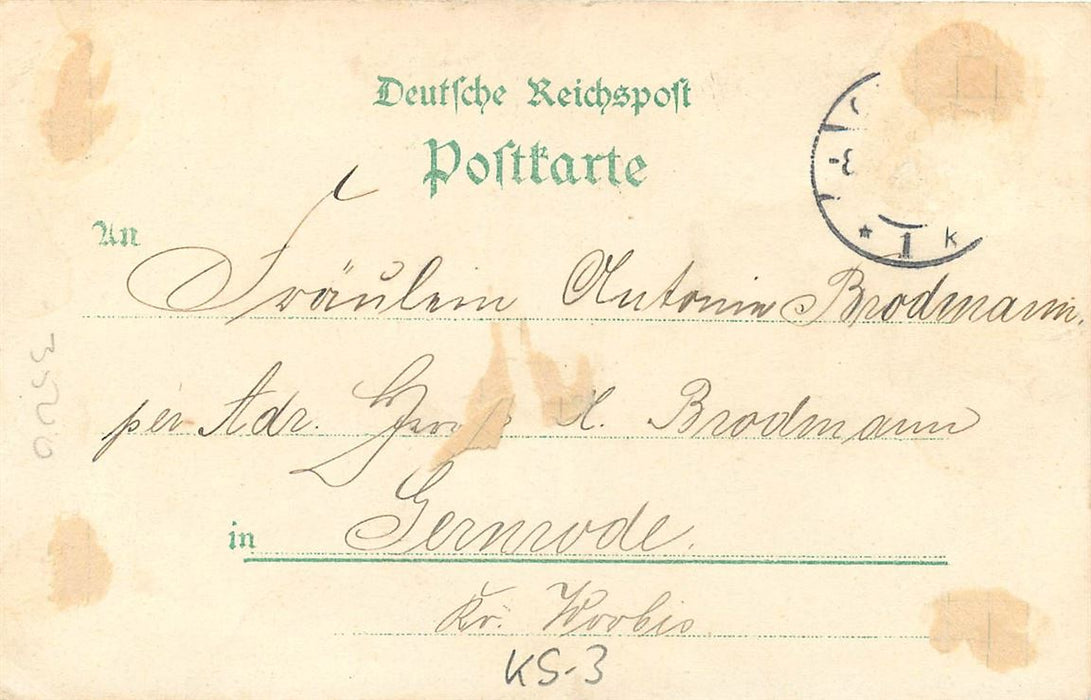 Deutsche Reichspost
Postkarte
* 1 k
An
Fräulein Antonie Brodmann,
per Adr. Brodmann
in Gernrode.
Kr. Worbis
KS-3